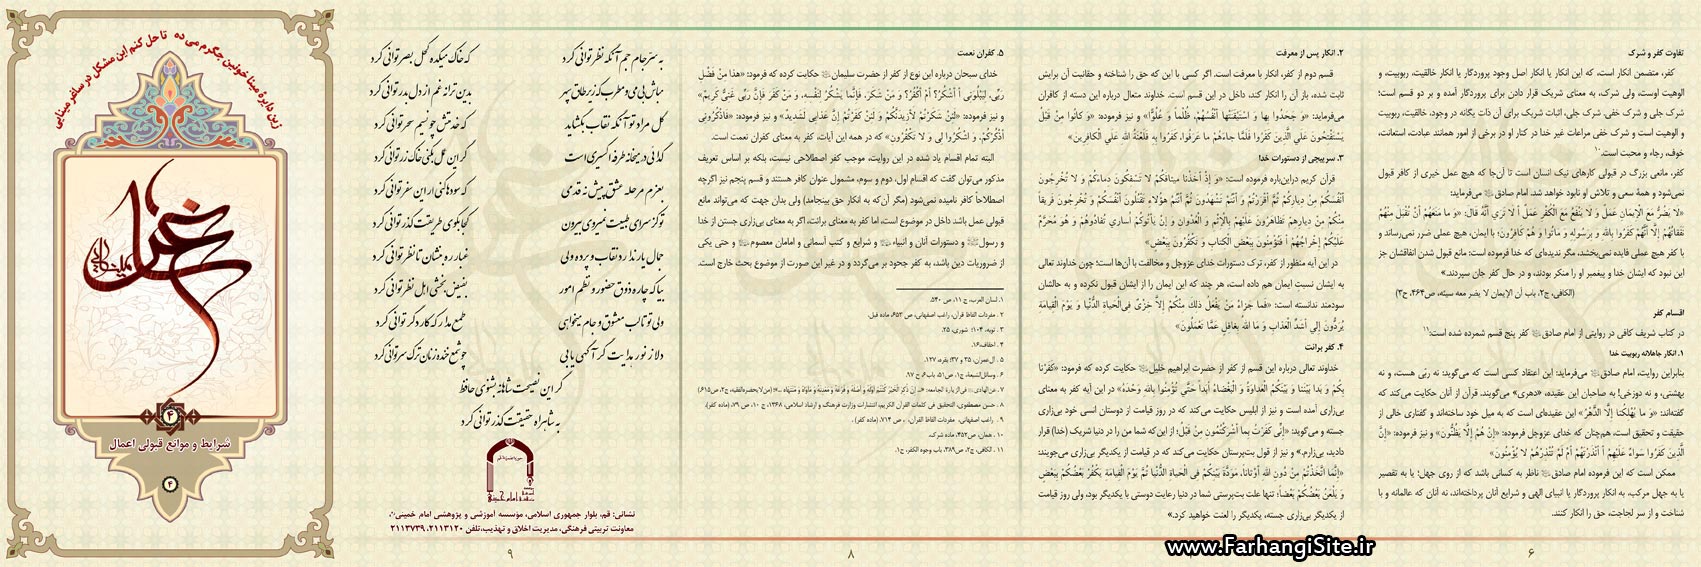 تفاوت کفر و شرک
کفر، متضمن انکار است، که این انکار یا انکار اصل وجود پروردگار یا انکار خالقیت، ربوبیت، و
الوهیت اوست، ولی شرک، به معنای شریک قرار دادن برای پروردگار آمده و بر دو قسم است؛
شرک جلی و شرک خفی. شرک جلی، اثبات شریک برای آن ذات یگانه در وجود، خالقیت، ربوبیت
و الوهیت است و شرک خفی مراعات غیر خدا در کنار او در برخی از امور همانند عبادت، استعانت،
خوف، رجاء و محبت است.۱۰
کفر، مانعی بزرگ در قبولی کارهای نیک انسان است تا آن‌جا که هیچ عمل خیری از کافر قبول
نمی‌شود و همهٔ سعی و تلاش او نابود خواهد شد. امام صادق می‌فرماید:
«لا یضُرُّ مَعَ الْإیمانِ عَمَلٌ وَ لا یَنْفَعُ مَعَ الْکُفْرِ عَمَلٌ أ لا تَرى أَنَّهُ قالَ: «وَ ما مَنَعَهُمْ أَنْ تُقْبَلَ مِنْهُمْ
نَفَقاتُهُمْ إِلَّا أَنَّهُمْ کَفَرُوا بِاللَّهِ وَ بِرَسُولِهِ وَ ماتُوا وَ هُمْ کافِرُونَ؛ با ایمان، هیچ عملی ضرر نمی‌رساند و
با کفر هیچ عملی فایده نمی‌بخشد، مگر ندیده‌ای که خدا فرموده است: مانع قبول شدن انفاقشان جز
این نبود که ایشان خدا و پیغمبر او را منکر بودند، و در حال کفر جان سپردند.»
(الکافی، ج۲، باب أن الإیمان لا یضر معه سیئه، ص۴۶۴، ح۳)
اقسام کفر
در کتاب شریف کافی در روایتی از امام صادق کفر پنج قسم شمرده شده است:۱۱
۱. انکار جاهلانه ربوبیت خدا
بنابراین روایت، امام صادق می‌فرماید: این اعتقاد کسی است که می‌گوید نه ربّی هست، و نه
بهشتی، و نه دوزخی! به صاحبان این عقیده، «دهری» می‌گویند. قرآن از آنان حکایت می‌کند که
گفته‌اند: «وَ ما یُهْلِکُنا إِلَّا الدَّهْرُ» این عقیده‌ای است که به میل خود ساخته‌اند و گفتاری خالی از
حقیقت و تحقیق است، هم‌چنان که خدای عزوجل فرموده: «إِنْ هُمْ إِلَّا یَظُنُّونَ» و نیز فرموده: «إِنَّ
الَّذِینَ کَفَرُوا سَواءٌ عَلَیْهِمْ أَ أَنْذَرْتَهُمْ أَمْ لَمْ تُنْذِرْهُمْ لا یُؤْمِنُونَ»
ممکن است که این فرموده امام صادق ناظر به کسانی باشد که از روی جهل؛ یا به تقصیر
یا به جهل مرکب، به انکار پروردگار یا انبیای الهی و شرایع آنان پرداخته‌اند، نه آنان که عالمانه و با
شناخت و از سر لجاجت، حق را انکار کنند.
۶
۲. انکار پس از معرفت
قسم دوم از کفر، انکار با معرفت است. اگر کسی با این که حق را شناخته و حقانیت آن برایش
ثابت شده، باز آن را انکار کند، داخل در این قسم است. خداوند متعال درباره این دسته از کافران
می‌فرماید: «وَ جَحَدُوا بِها وَ اسْتَیْقَنَتْها أَنْفُسُهُمْ، ظُلْماً وَ عُلُوًّا» و نیز فرموده: «وَ کانُوا مِنْ قَبْلُ
یَسْتَفْتِحُونَ عَلَى الَّذِینَ کَفَرُوا فَلَمَّا جاءَهُمْ ما عَرَفُوا، کَفَرُوا بِهِ فَلَعْنَةُ اللَّهِ عَلَى الْکافِرِینَ»
۳. سرپیچی از دستورات خدا
قرآن کریم دراین‌باره فرموده است: «وَ إِذْ أَخَذْنا مِیثاقَکُمْ لا تَسْفِکُونَ دِماءَکُمْ وَ لا تُخْرِجُونَ
أَنْفُسَکُمْ مِنْ دِیارِکُمْ ثُمَّ أَقْرَرْتُمْ وَ أَنْتُمْ تَشْهَدُونَ ثُمَّ أَنْتُمْ هؤُلاءِ تَقْتُلُونَ أَنْفُسَکُمْ وَ تُخْرِجُونَ فَرِیقاً
مِنْکُمْ مِنْ دِیارِهِمْ تَظاهَرُونَ عَلَیْهِمْ بِالْإِثْمِ وَ الْعُدْوانِ وَ إِنْ یَأْتُوکُمْ أُسارى تُفادُوهُمْ وَ هُوَ مُحَرَّمٌ
عَلَیْکُمْ إِخْراجُهُمْ أَ فَتُؤْمِنُونَ بِبَعْضِ الْکِتابِ وَ تَکْفُرُونَ بِبَعْضٍ»
در این آیه منظور از کفر، ترک دستورات خدای عزوجل و مخالفت با آن‌ها است؛ چون خداوند تعالی
به ایشان نسبتِ ایمان هم داده است، هر چند که این ایمان را از ایشان قبول نکرده و به حالشان
سودمند ندانسته است: «فَما جَزاءُ مَنْ یَفْعَلُ ذلِکَ مِنْکُمْ إِلَّا خِزْیٌ فِی الْحَیاةِ الدُّنْیا وَ یَوْمَ الْقِیامَةِ
یُرَدُّونَ إِلى أَشَدِّ الْعَذابِ وَ مَا اللَّهُ بِغافِلٍ عَمَّا تَعْمَلُونَ»
۴. کفر برائت
خداوند تعالی درباره این قسم از کفر از حضرت ابراهیم خلیل حکایت کرده که فرمود: «کَفَرْنا
بِکُمْ وَ بَدا بَیْنَنا وَ بَیْنَکُمُ الْعَداوَةُ وَ الْبَغْضاءُ أَبَداً حَتَّى تُؤْمِنُوا بِاللَّهِ وَحْدَهُ» در این آیه کفر به معنای
بی‌زاری آمده است و نیز از ابلیس حکایت می‌کند که در روز قیامت از دوستان انسی خود بی‌زاری
جسته و می‌گوید: «إِنِّی کَفَرْتُ بِما أَشْرَکْتُمُونِ مِنْ قَبْلُ؛ از این‌که شما من را در دنیا شریک (خدا) قرار
دادید، بی‌زارم.» و نیز از قول بت‌پرستان حکایت می‌کند که در قیامت از یکدیگر بی‌زاری می‌جویند:
«إِنَّمَا اتَّخَذْتُمْ مِنْ دُونِ اللَّهِ أَوْثاناً، مَوَدَّةَ بَیْنِکُمْ فِی الْحَیاةِ الدُّنْیا ثُمَّ یَوْمَ الْقِیامَةِ یَکْفُرُ بَعْضُکُمْ بِبَعْضٍ
وَ یَلْعَنُ بَعْضُکُمْ بَعْضاً؛ تنها علت بت‌پرستی شما در دنیا رعایت دوستی با یکدیگر بود، ولی روز قیامت
از یکدیگر بی‌زاری جسته، یکدیگر را لعنت خواهید کرد.»
www.FarhangiSite.ir
۵. کفران نعمت
خدای سبحان درباره این نوع از کفر از حضرت سلیمان حکایت کرده که فرمود: «هذا مِنْ فَضْلِ
رَبِّی، لِیَبْلُوَنِی أَ أَشْکُرُ؟ أَمْ أَکْفُرُ؟ وَ مَنْ شَکَرَ، فَإِنَّما یَشْکُرُ لِنَفْسِهِ، وَ مَنْ کَفَرَ فَإِنَّ رَبِّی غَنِیٌّ کَرِیمٌ»
و نیز فرموده: «لَئِنْ شَکَرْتُمْ لَأَزِیدَنَّکُمْ وَ لَئِنْ کَفَرْتُمْ إِنَّ عَذابِی لَشَدِیدٌ» و نیز فرموده: «فَاذْکُرُونِی
أَذْکُرْکُمْ، وَ اشْکُرُوا لِی وَ لا تَکْفُرُونِ» که در همه این آیات، کفر به معنای کفران نعمت است.
البته تمام اقسام یاد شده در این روایت، موجب کفر اصطلاحی نیست، بلکه بر اساس تعریف
مذکور می‌توان گفت که اقسام اول، دوم و سوم، مشمول عنوان کافر هستند و قسم پنجم نیز اگرچه
اصطلاحاً کافر نامیده نمی‌شود (مگر آن‌که به انکار حق بینجامد) ولی بدان جهت که می‌تواند مانع
قبولی عمل باشد داخل در موضوع است، اما کفر به معنای برائت، اگر به معنای بی‌زاری جستن از خدا
و رسول و دستورات آنان و انبیاء و شرایع و کتب آسمانی و امامان معصوم و حتی یکی
از ضروریات دین باشد، به کفر جحود بر می‌گردد و در غیر این صورت از موضوع بحث خارج است.
۱. لسان العرب، ج ۱۱، ص ۵۴۰.
۲ . مفردات الفاظ قرآن، راغب اصفهانی، ص ۶۵۳، ماده قبل.
۳ . توبه، ۱۰۴؛ شوری، ۲۵.
۴ . احقاف،۱۶.
۵ . آل‌عمران، ۳۵ و ۳۷؛ بقره، ۱۲۷.
۶ . وسائل‌الشیعة، ج۱، ص۵۱، باب۶ ح ۹۷.
۸ . حسن مصطفوی، التحقیق فی کلمات القرآن الکریم، انتشارات وزارت فرهنگ و ارشاد اسلامی، ۱۳۶۸، ج ۱۰، ص ۷۹، (ماده کفر).
۹ . راغب اصفهانی، مفردات الفاظ القرآن، ، ص ۷۱۴، (ماده کفر) .
۱۰ . همان، ص۴۵۲، ماده شرک.
۱۱ . الکافی، ج۲، ص۳۸۹، باب وجوه الکفر، ح۱.
۸
به سرّ جام جم آنگه نظر توانی کرد که خاک میکده کحل بصر توانی کرد
مباش بی می و مطرب که زیر طاق سپهر بدین ترانه غم از دل به در توانی کرد
گل مراد تو آنگه نقاب بگشاید که خدمتش چو نسیم سحر توانی کرد
گدائی در میخانه طرفه اکسیری است گر این عمل بکنی خاک زر توانی کرد
بعزم مرحله عشق پیش نه قدمی که سودها کنی ار این سفر توانی کرد
تو کز سرای طبیعت نمیروی بیرون کجا بکوی طریقت گذر توانی کرد
جمال یار ندارد نقاب و پرده ولی غبار ره بنشان تا نظر توانی کرد
بیا که چاره ذوق حضور و نظم امور بفیض بخشی اهل نظر توانی کرد
ولی تو تا لب معشوق و جام میخواهی طمع مدار که کار دگر توانی کرد
دلا ز نور هدایت گر آگهی یابی چو شمع خنده زنان ترک سر توانی کرد
گر این نصیحت شاهانه بشنوی حافظ
به شاهراه حقیقت گذر توانی کرد
نشانی: قم، بلوار جمهوری اسلامی، مؤسسه آموزشی و پژوهشی امام خمینی
معاونت تربیتی فرهنگی، مدیریت اخلاق و تهذیب،تلفن ۲۱۱۳۱۲۰، ۲۱۱۳۷۳۹
۹
زین دایرهٔ مینا خونین جگرم می ده تا حل کنم این مشکل در ساغر مینایی
۴
شرایط و موانع قبولی اعمال
۴